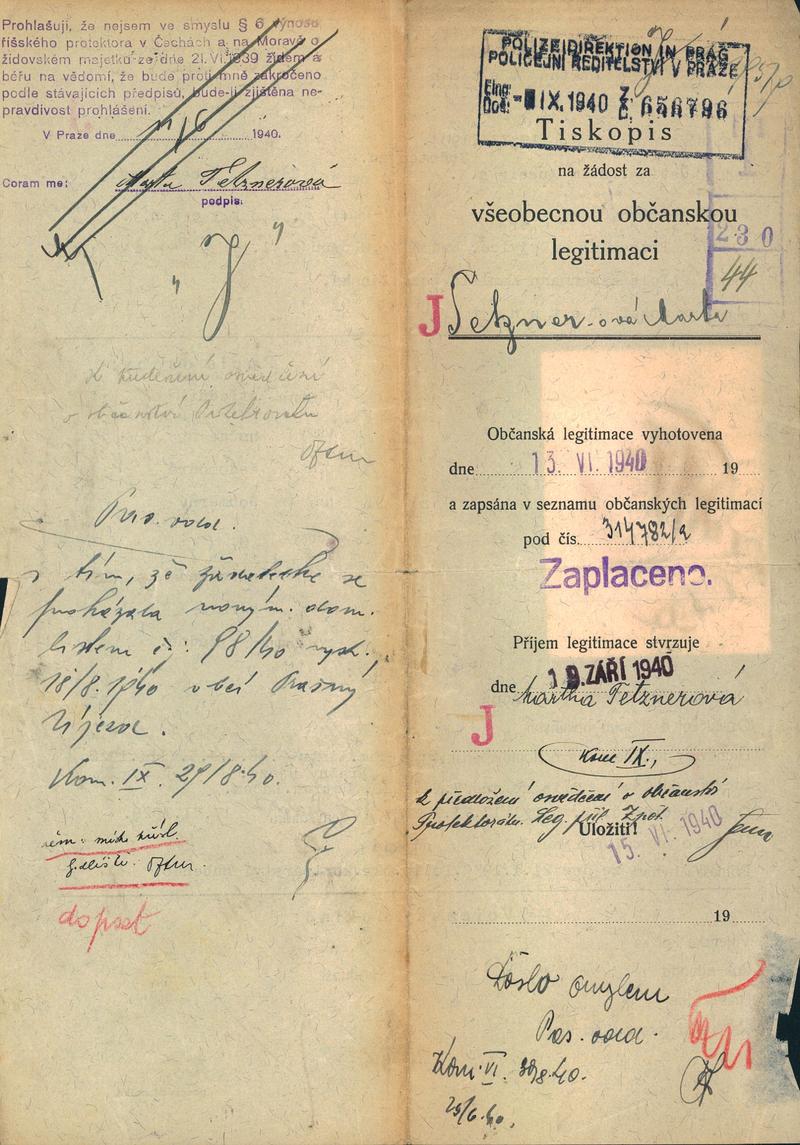 Prohlašuji, že nejsem ve smyslu § 6 výnosu
říšského protektora v Čechách a na Moravě o
židovském majetku ze dne 21. VI. 1939 židem a
béřu na vědomí, že bude proti mně zakročeno
podle stávajících předpisů, bude-li zjištěna ne-
pravdivost prohlášení.
V Praze dne 1940.
Coram me: Marta Tetznerová
podpis:
K předložení osvědčení
o občanství Protektorátu
Pas. odd.
s tím, že žadatelka se
prokázala novým dom.
listem čj: 98/40 vyst.
18/8. 1940 obcí Krásný
Újezd.
Kom. IX. 29/8.40.
dopsat
POLIZEIDIREKTION IN PRAG
POLICEJNÍ ŘEDITELSTVÍ V PRAZE
Eing.
Doš. IX. 1940 Z. Č. 656796
Tiskopis
na žádost za
všeobecnou občanskou
legitimaci
230
44
J Tetzner-ová Marta
Občanská legitimace vyhotovena
dne 13. VI. 1940 19
a zapsána v seznamu občanských legitimací
pod čís. 314782/a
Zaplaceno.
Příjem legitimace stvrzuje
dne 10. ZÁŘÍ 1940
Martha Tetznerová
J
Kom IX.,
k předložení osvědčení o občanství
Protektorátu. Leg. při. Zpět.
Uložiti!
15. VI. 1940
19
Došlo omylem
Pas. odd.
Kom. VI. 30/8.40.
25/6.40.